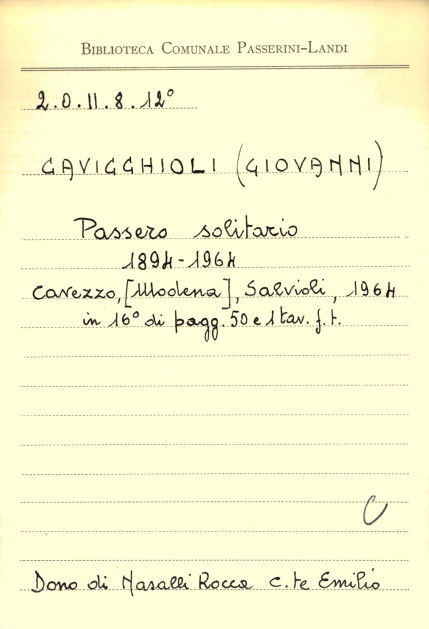 BIBLIOTECA COMUNALE PASSERINI-LANDI
2.0.11.8.12°
CAVICCHIOLI (GIOVANNI)
Passero solitario
1894-1964
Cavezzo, [Modena], Salvioli, 1964
in 16° di pagg. 50 e 1 tav. f. t.
C
Dono di Nasalli Rocca C.te Emilio